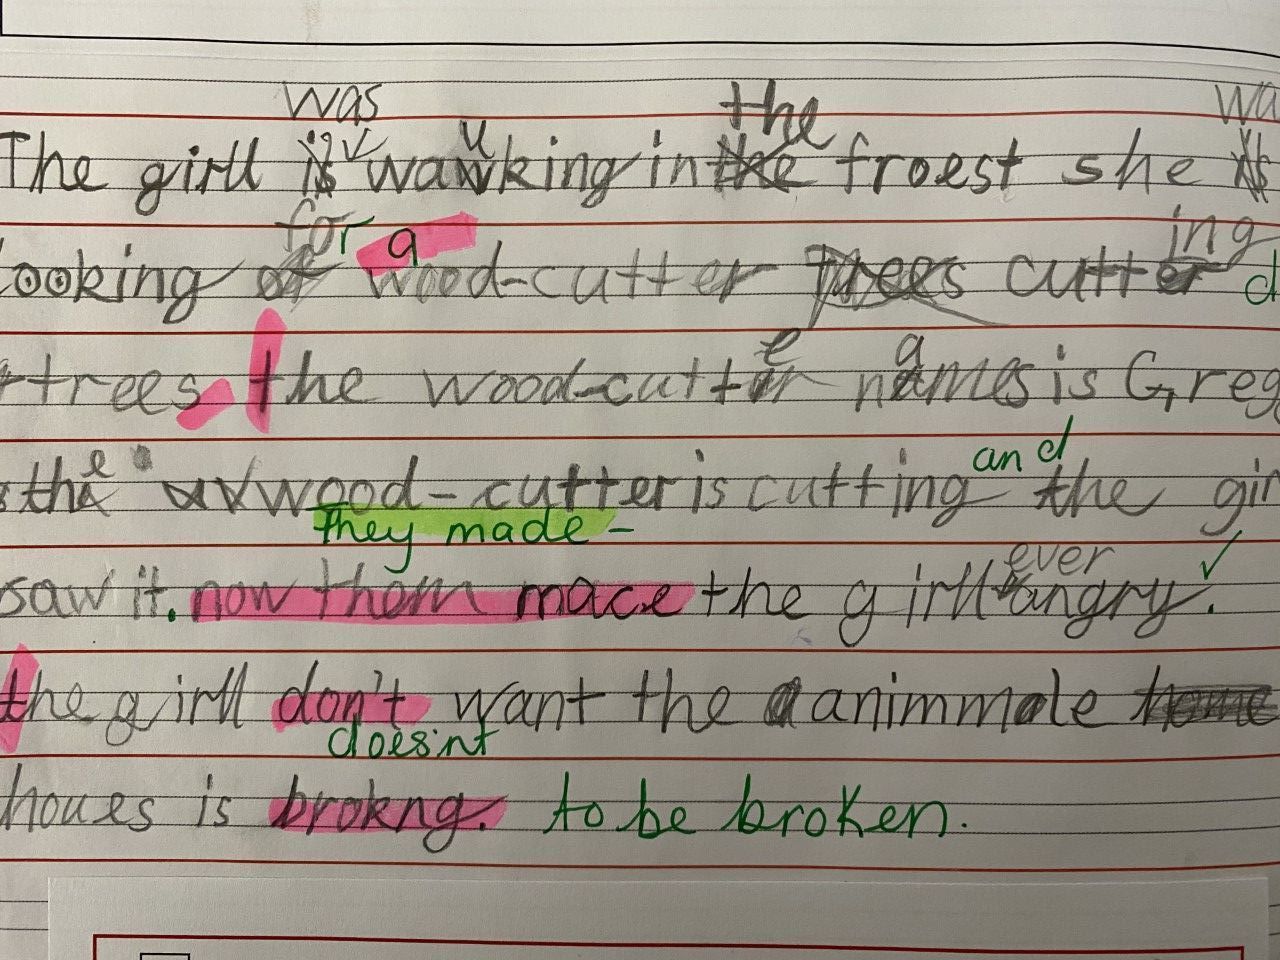 was the wa
The girll is wauking in the froest she is
for a ing
ooking of wood-cutter trees cutter d
trees. the wood-cutter names is Greg
the wood-cutter is cutting and the gir
they made -
saw it. now them mace the girll ever angry.
the girll don't want the animmole home
doesint
houes is brokng. to be broken.